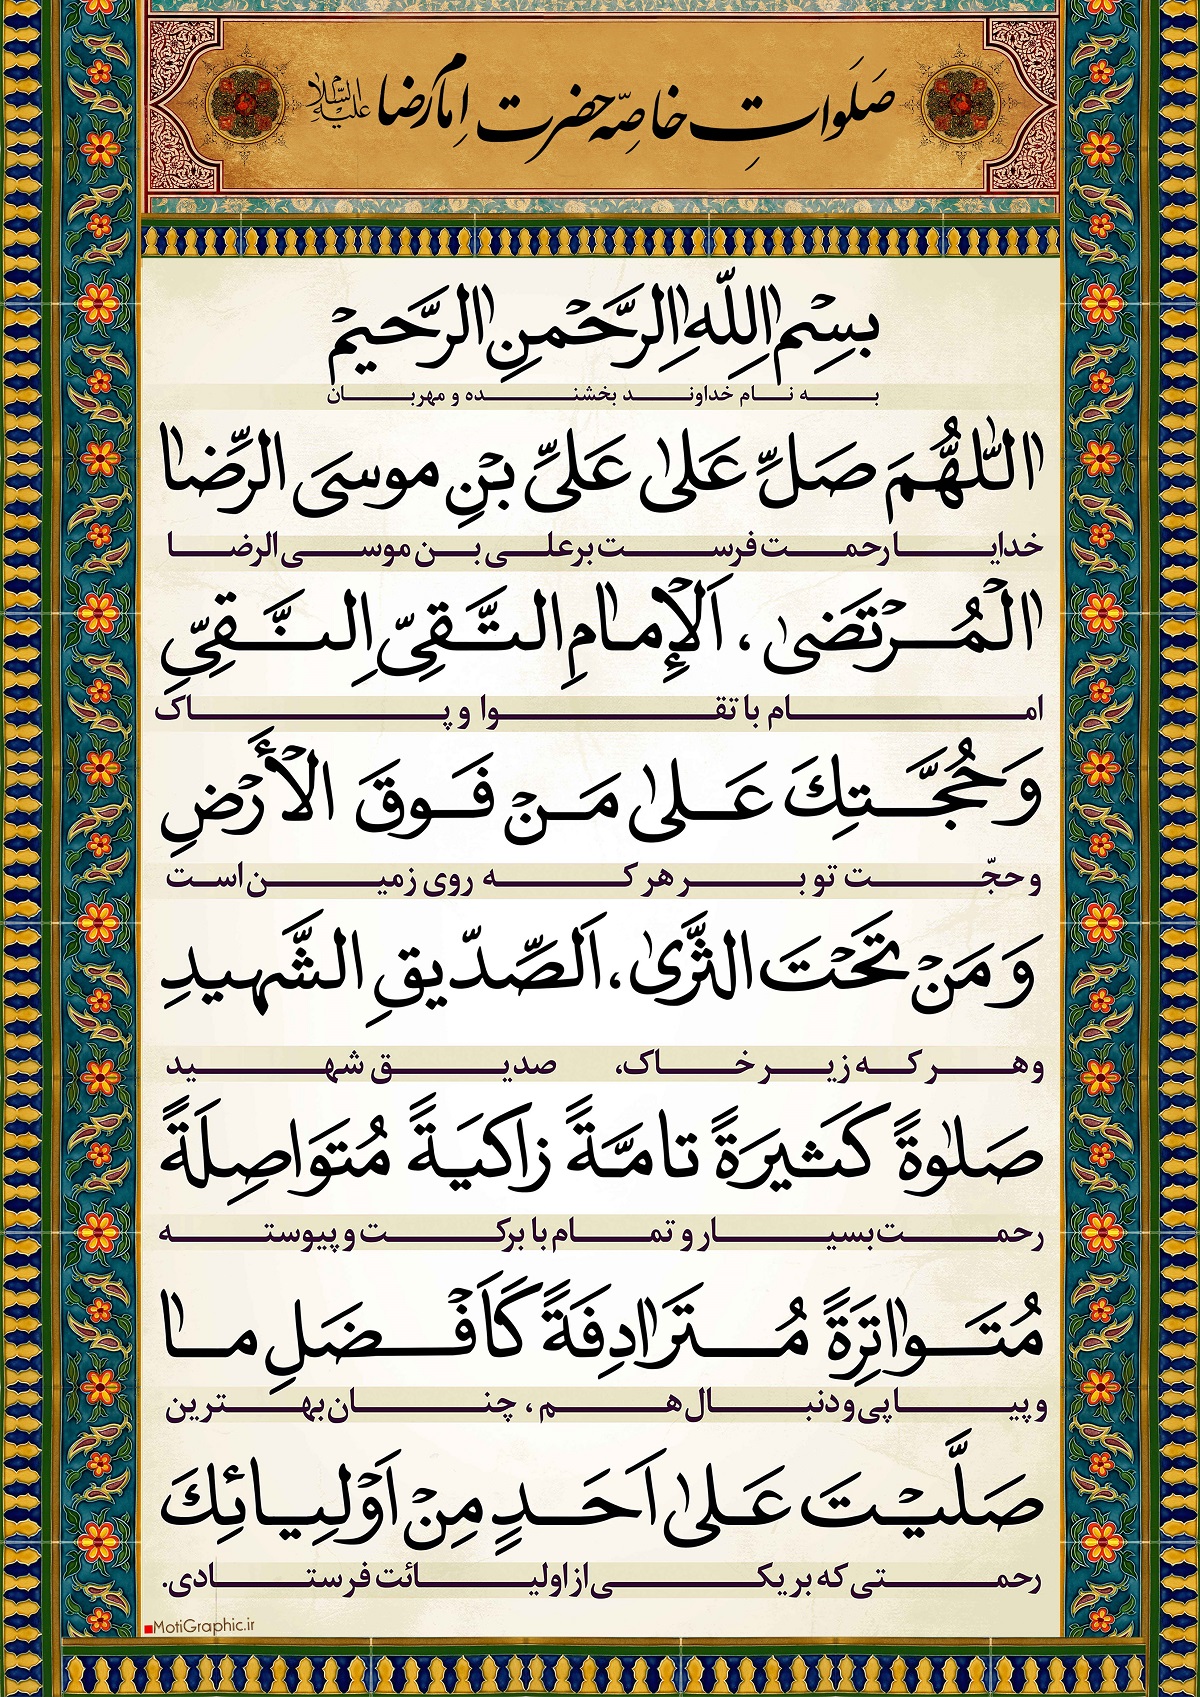 صَلَواتِ خاصّه حضرت اِمام رضا علیه السّلام
بِسْمِ اللّٰهِ الرَّحْمنِ الرَّحیمْ
به نام خداوند بخشنده و مهربان
اَللّٰهُمَّ صَلِّ عَلیٰ عَلیِّ بْنِ موسَی الرِّضَا
خدایا رحمت فرست بر علی بن موسی الرضا
الْمُرْتَضیٰ ، اَلْاِمامِ التَّقِیِّ النَّقِیِّ
امام با تقوا و پاک
وَ حُجَّتِكَ عَلیٰ مَنْ فَوقَ الْأَرْضِ
و حجّت تو بر هر که روی زمین است
وَ مَنْ تَحْتَ الثَّریٰ، اَلصِّدّیقِ الشَّهیدِ
و هر که زیر خاک، صدیق شهید
صَلٰوةً كَثیرَةً تامَّةً زاكیَةً مُتَوَاصِلَةً
رحمت بسیار و تمام با برکت و پیوسته
مُتَواتِرَةً مُتَرَادِفَةً كَاَفْضَلِ ما
و پیاپی و دنبال هم ، چنان بهترین
صَلَّیْتَ عَلیٰ اَحَدٍ مِنْ اَوْلِیائِكَ
رحمتی که بر یکی از اولیائت فرستادی.
MotiGraphic.ir